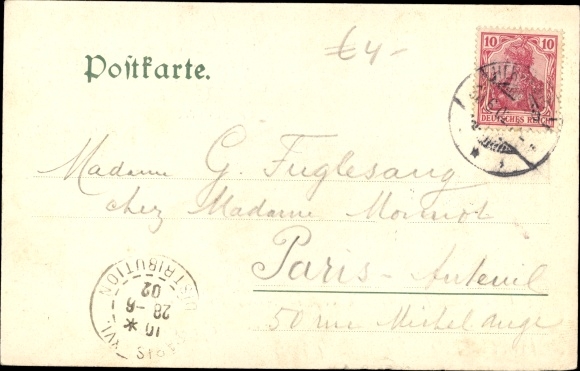 €4-
Postkarte.
10 10
DEUTSCHES REICH
Madame G. Fuglesang
chez Madame Monnot
Paris-Auteuil
50 rue Michel Ange
DISTRIBUTION
PARIS XVI
10
28-6
02